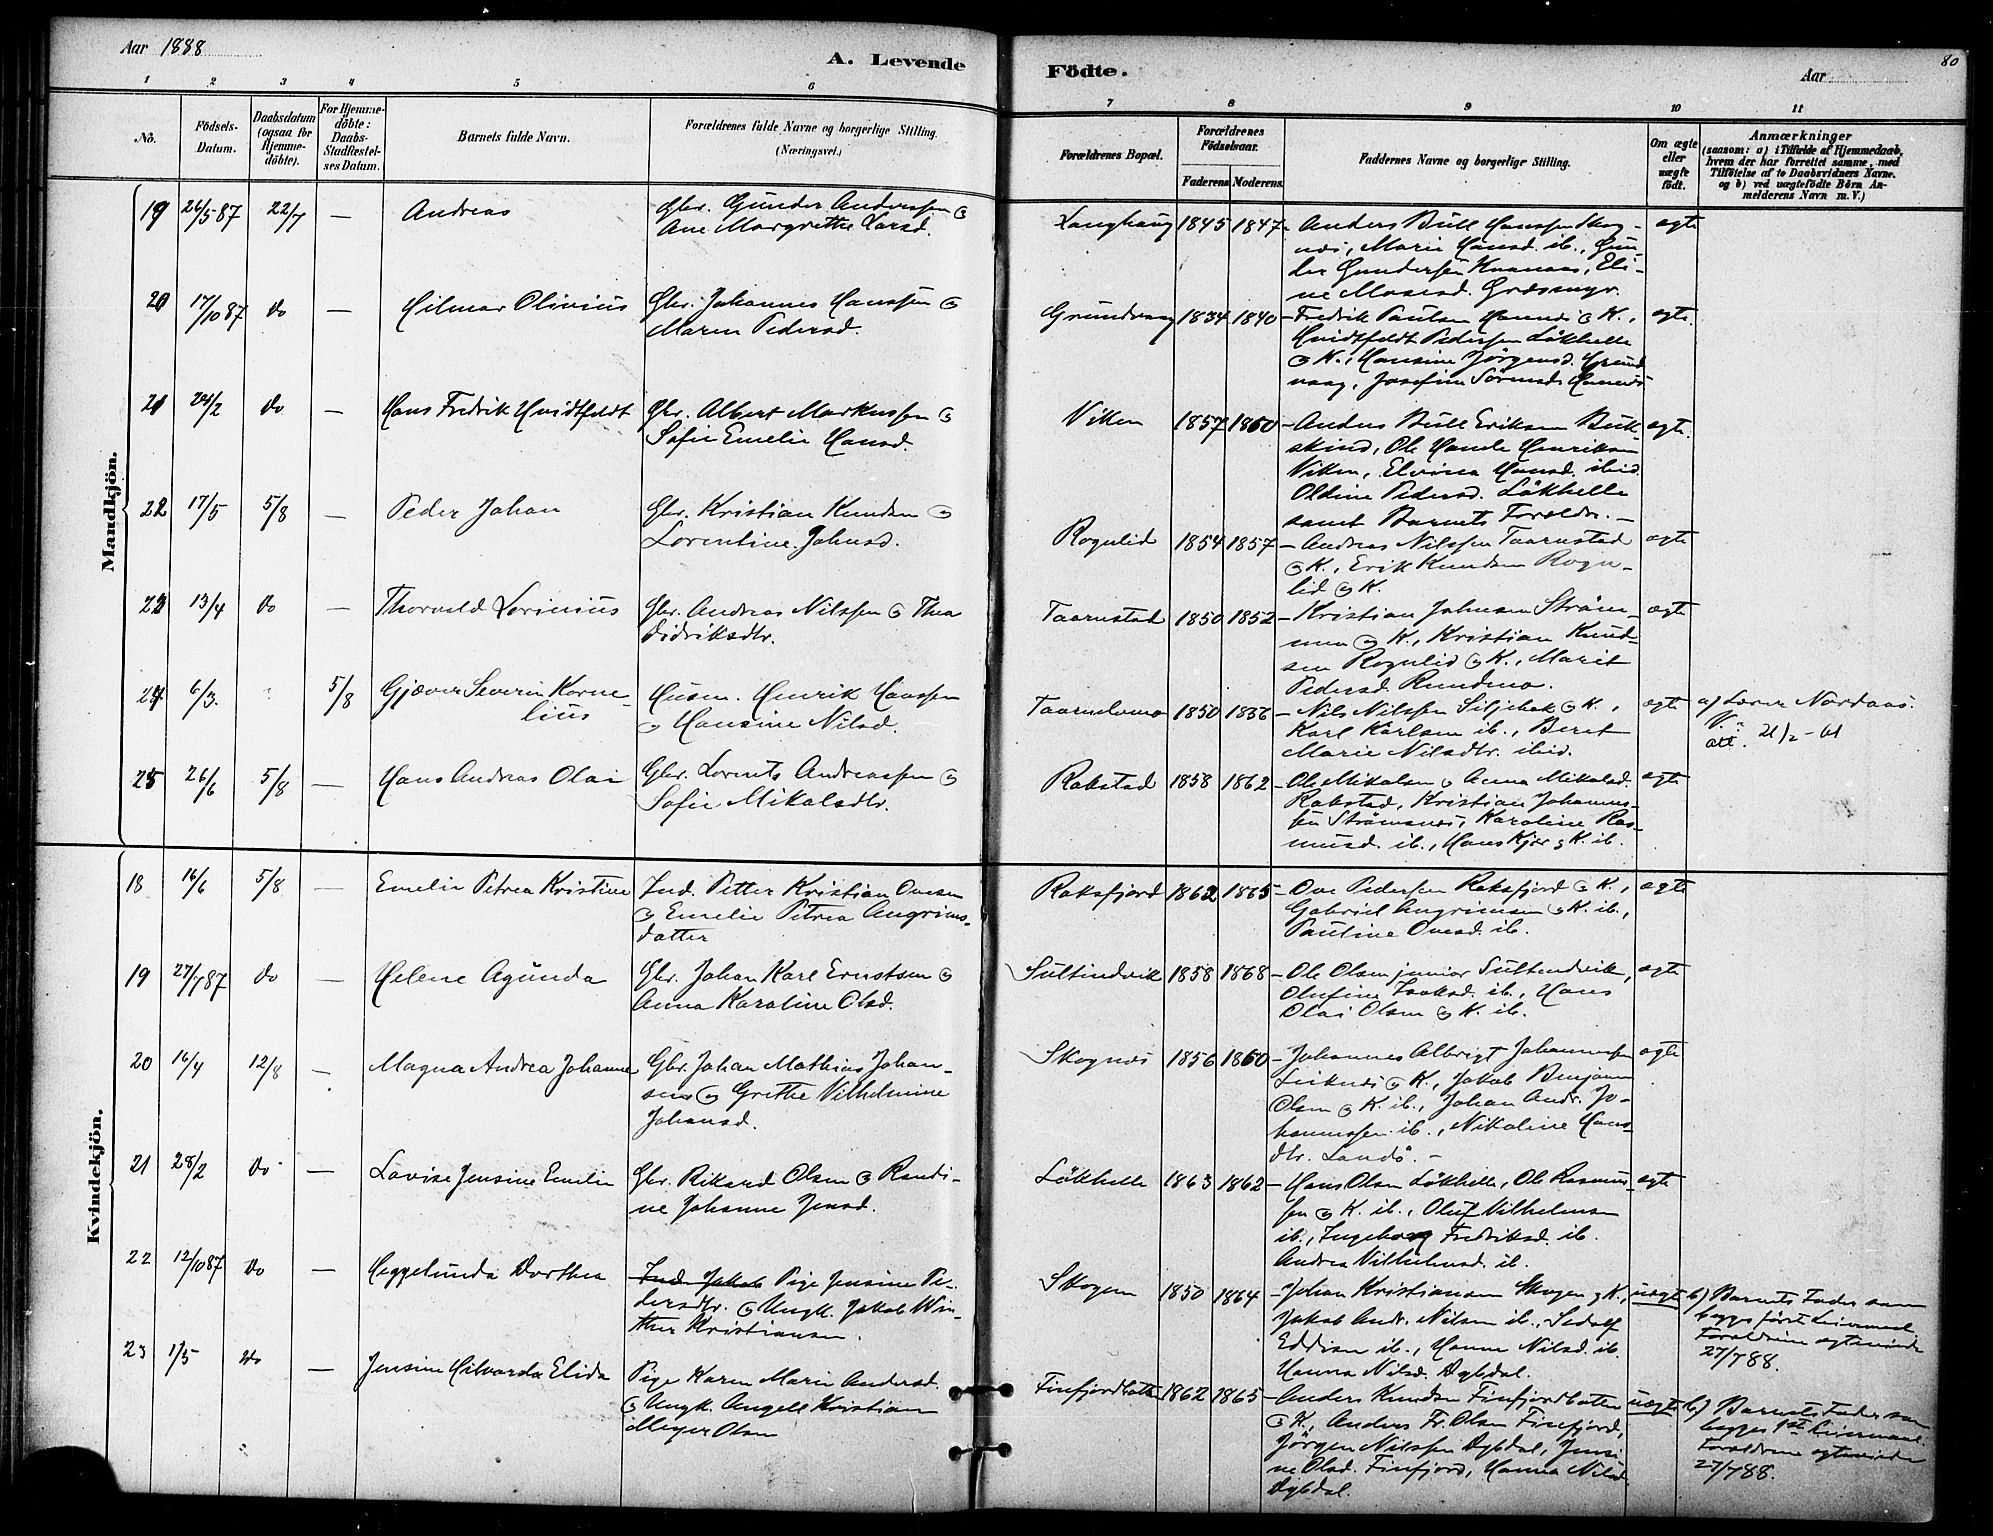 Aar 1888
A. Levende
Födte.
Aar
80
1 2 3 4 5 6 7 8 9 10 11
No.
Födsels-
Datum.
Daabsdatum
(ogsaa for
Hjemme-
döbte).
For Hjemme-
döbte:
Daabs-
Stadfæstel-
ses Datum.
Barnets fulde Navn.
Forældrenes fulde Navne og borgerlige Stilling.
(Næringsvei.)
Forældrenes Bopæl.
Forældrenes
Födselsaar.
Faderens Moderens
Faddernes Navne og borgerlige Stilling.
Om ægte
eller
uægte
födt.
Anmærkninger
(saasom: a) i Tilfælde af Hjemmedaab,
hvem der har forrettet samme, med
Tilföielse af to Daabsvidners Navne.
og b) ved uægtefödte Börn An-
melderens Navn m. V.)
Mandkjön.
19 26/5-87 22/7 — Andreas
Gbr. Gunder Anderssen og
Ane Margrethe Larsd.
Langhaug 1845 1847
Anders Bull Hanssen Skog-
næs, Marie Hansd. ib., Gun-
der Gundersen Kvanaas, Eli-
ne Mosesd. Græsmyr.
ægte
20 17/10 87 do — Hilmar Olivius
Gbr. Johannes Hanssen og
Maren Pedersd.
Grundvaag 1834 1840
Fredrik Paulsen Hannæs og K.,
Hvidtfeldt Pedersen Løkhelle
og K., Hansine Jørgensd. Grund
vaag, Josefine Sörensd. Hannæs
ægte.
21 24/2 do — Hans Fredrik Hvidtfeldt
Gbr. Albert Markussen og
Sofie Emelie Hansd.
Viken 1857 1860
Anders Bull Eriksen Buk-
skind, Ole Hamle Henriksen
Viken, Elvina Hansd. ibid.
Oldine Pedersd. Løkhelle
samt Barnets Forældre. —
ægte.
22 17/5 5/8 — Peder Johan
Gbr. Kristian Knudsen og
Lorentine Johnsd.
Rognlid 1854 1857
Andreas Nilssen Taarnstad
og K., Erik Knudsen Rogn-
lid og K.
ægte
23 13/4 do — Thorvald Lorinius
Gbr. Andreas Nilssen og Thea
Didriksdtr.
Taarnstad 1850 1852
Kristian Johnsen Ström-
men og K., Kristian Knud-
sen Rognlid og K., Marit
Pedersd. Rundmo.
ægte
24 6/3. 5/8 Gjæver Severin Korne-
lius
Husm. Henrik Hanssen
og Hansine Nilsd.
Taarnelvmo 1850 1836
Nils Nilssen Siljebak og K.,
Karl Karlsen ib., Beret
Marie Nilsdtr. ibid.
ægte
a) Lærer Nordaas.
V.
att. 21/2-61
25 26/6 5/8 — Hans Andreas Olai
Gbr. Lorents Andreassen og
Sofie Mikalsdtr.
Rakstad 1858 1862
Ole Mikalsen og Anna Mikalsd.
Rakstad, Kristian Johannes-
sen Strömsnes, Karoline Ras-
musd. ib., Hans Kjær og K. ib.
ægte
Kvindekjön.
18 16/6 5/8 — Emelie Petrea Kristine
Ind. Petter Kristian Ovesen
og Emelie Petrea Angrims-
datter
Raksfjord 1862 1865
Ove Pedersen Raksfjord og K.,
Gabriel Angrimsen og K. ib.,
Pauline Ovesd. ib.
ægte
19 27/7 87 do — Helene Agunda
Gbr. Johan Karl Ernstsen og
Anna Karoline Olsd.
Sultindvik 1858 1868
Ole Olsen junior Sultindvik,
Olufine Isaksd. ib., Hans
Olai Olsen og K. ib.
ægte
20 16/4 12/8 — Magna Andrea Johanne
Gbr. Johan Mathias Johan-
sen og Grethe Vilhelmine
Johansd.
Skognæs 1856 1860
Johannes Albrigt Johannessen
Leiknæs og K., Jakob Benjamin
Olsen og K. ib., Johan Andr. Jo-
hannessen ib., Nikoline Hans-
dtr. Sandö. —
ægte
21 28/2 do — Lovise Jensine Emelie
Gbr. Rikard Olsen og Randi-
ne Johanne Jensd.
Løkhelle 1863 1862
Hans Olsen Løkhelle, Ole Rasmus-
sen og K. ib., Oluf Vilhelmsen
ib., Ingeborg Fredriksd. ib.
Andrea Vilhelmsd. ib.
ægte
22 12/10 87 do — Heggelunda Dorthea
Ind. Jakob Pige Jensine Pe-
dersdtr. og Ungk. Jakob Win-
ther Kristiansen.
Skogen 1850 1864
Johan Kristiansen Skogen og K.,
Jakob Andr. Nilsen ib., Sedolf
Eddisen ib., Hanna Nilsd. ib.
Hanna Nilsd. Dybdal.
uægte
b) Barnets Fader som
begges först Leiermaal.
Forældrene ægteviede
27/7 88.
23 1/5 do — Jensine Hilvarda Elida
Pige Karen Marie Andersd.
og Ungk. Angell Kristian
Meyer Olsen
Finfjordbotten 1862 1865
Anders Knudsen Finfjordbotten
og K., Anders Fr. Olsen Finfjord,
Jørgen Nilssen Dybdal, Jensi-
ne Olsd. Finfjord, Hanna Nilsd.
Dybdal.
uægte
b) Barnets Fader som
begges 1ste Leiermaal.
Forældrene ægteviede
27/7 88.